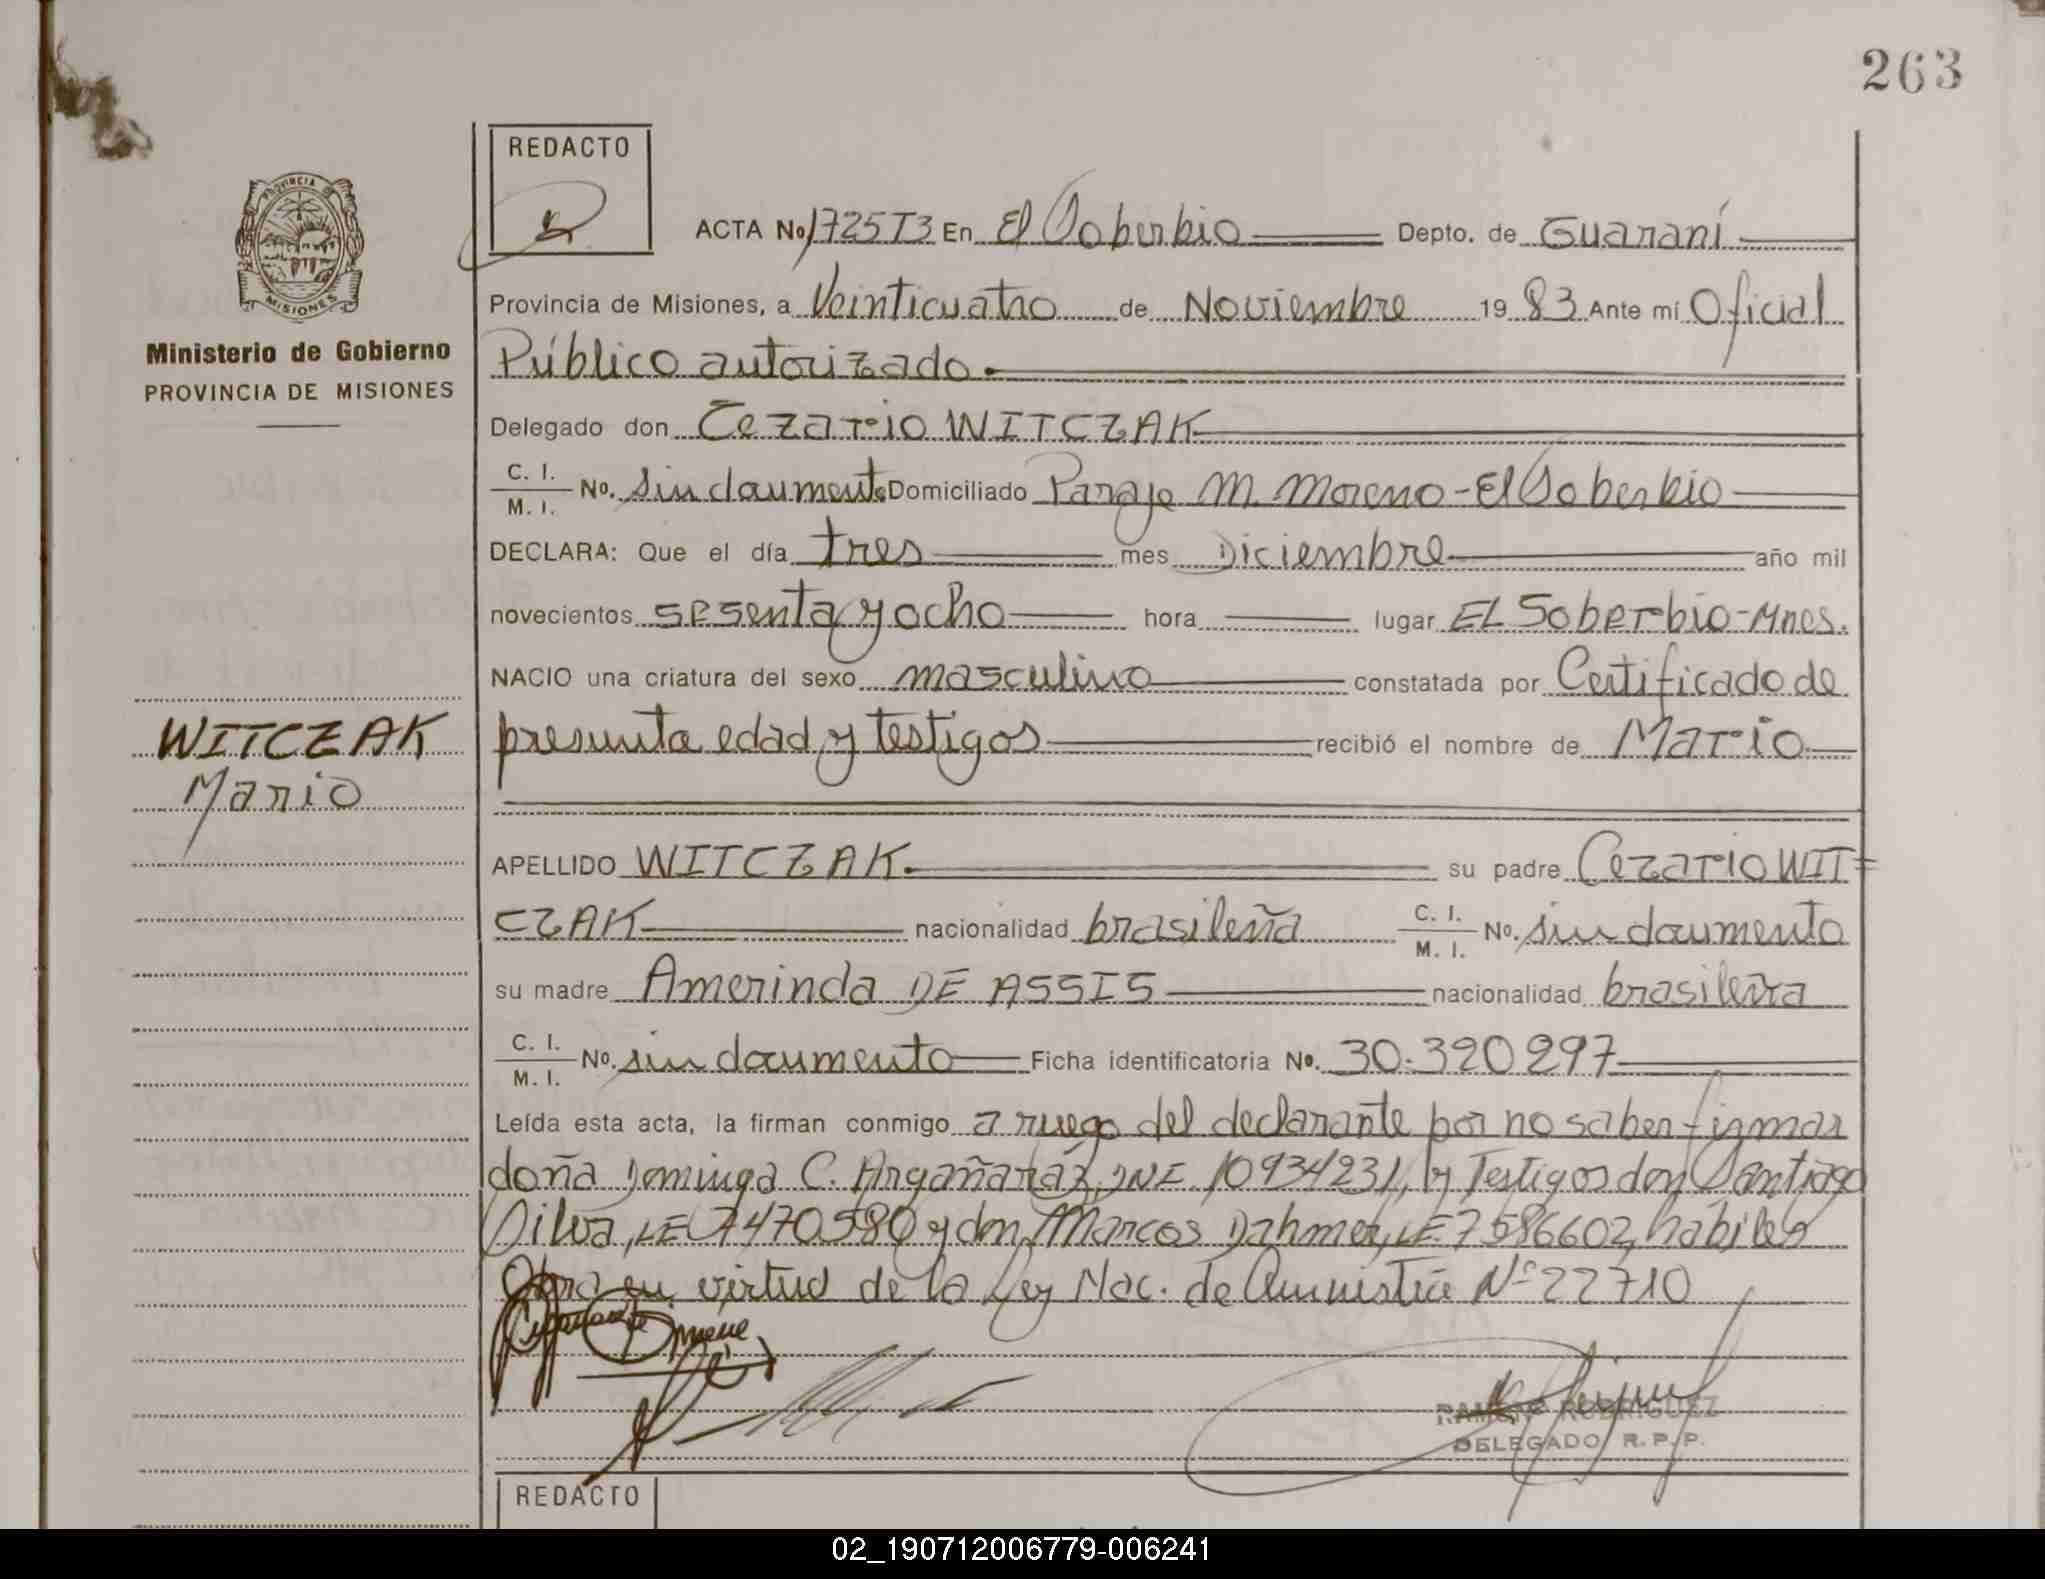 263
REDACTO
ACTA No 1725T3 En El Soberbio Depto. de Guaraní
PROVINCIA DE MISIONES
Provincia de Misiones, a Veinticuatro de Noviembre 19 83 Ante mí Oficial
Ministerio de Gobierno
Público autorizado.
PROVINCIA DE MISIONES
Delegado don Cezario WITCZAK
C. I. / M. I. No. sin documento Domiciliado Paraje M. Moreno - El Soberbio
DECLARA: Que el día tres mes Diciembre año mil
novecientos sesenta y ocho hora lugar EL Soberbio - Mnes.
NACIO una criatura del sexo masculino constatada por Certificado de
WITCZAK
presunta edad y testigos recibió el nombre de Mario
Mario
APELLIDO WITCZAK su padre Cezario WIT=
CZAK nacionalidad brasileña C. I. / M. I. No. sin documento
su madre Amerinda DE ASSIS nacionalidad brasileña
C. I. / M. I. No. sin documento Ficha identificatoria No. 30.320297
Leída esta acta, la firman conmigo a ruego del declarante por no saber firmar
doña Dominga C. Argañaráz, DNI. 10934231, y Testigos don Santiago
Silva, LE 7470580 y don Marcos Dahmer, LE. 7586602, hábiles
Obra en virtud de la Ley Nac. de Amnistía Nº 22710
RAMON RODRIGUEZ
DELEGADO R. P. P.
REDACTO
02_190712006779-006241